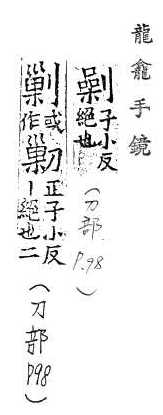 龍龕手鏡
剿子小反
絕也(刀部
P.98)
剿或
作勦正子小反
丨絕也二
(刀部
P98)